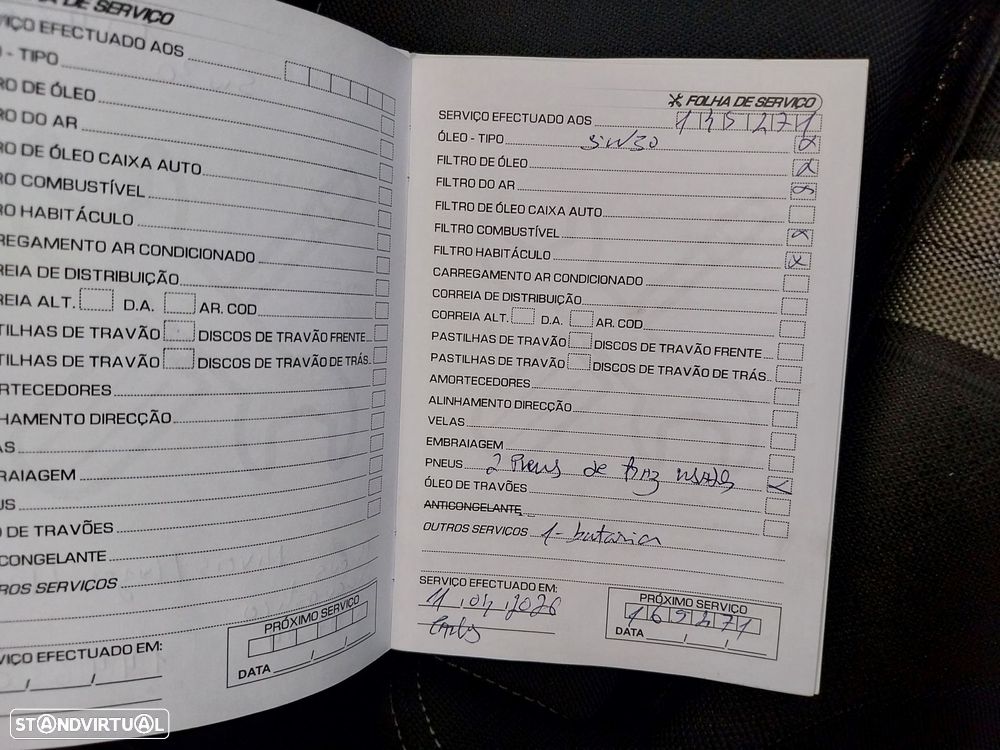 DE SERVIÇO
EFECTUADO AOS
- TIPO
DE ÓLEO
DO AR
DE ÓLEO CAIXA AUTO
COMBUSTÍVEL
HABITÁCULO
REGAMENTO AR CONDICIONADO
REIA DE DISTRIBUIÇÃO
REIA ALT. D.A. AR. COD
TILHAS DE TRAVÃO DISCOS DE TRAVÃO FRENTE
TILHAS DE TRAVÃO DISCOS DE TRAVÃO DE TRÁS
RTECEDORES
HAMENTO DIRECÇÃO
AS
RAIAGEM
US
DE TRAVÕES
CONGELANTE
ROS SERVIÇOS
VIÇO EFECTUADO EM:
PRÓXIMO SERVIÇO
DATA
FOLHA DE SERVIÇO
SERVIÇO EFECTUADO AOS
ÓLEO - TIPO 5W30 X
FILTRO DE ÓLEO X
FILTRO DO AR X
FILTRO DE ÓLEO CAIXA AUTO
FILTRO COMBUSTÍVEL X
FILTRO HABITÁCULO X
CARREGAMENTO AR CONDICIONADO
CORREIA DE DISTRIBUIÇÃO
CORREIA ALT. D.A. AR. COD
PASTILHAS DE TRAVÃO DISCOS DE TRAVÃO FRENTE
PASTILHAS DE TRAVÃO DISCOS DE TRAVÃO DE TRÁS
AMORTECEDORES
ALINHAMENTO DIRECÇÃO
VELAS
EMBRAIAGEM
PNEUS 2 Pneus de X
ÓLEO DE TRAVÕES
ANTICONGELANTE
OUTROS SERVIÇOS 1- bataria
SERVIÇO EFECTUADO EM:
PRÓXIMO SERVIÇO
165271
DATA
STANDVIRTUAL